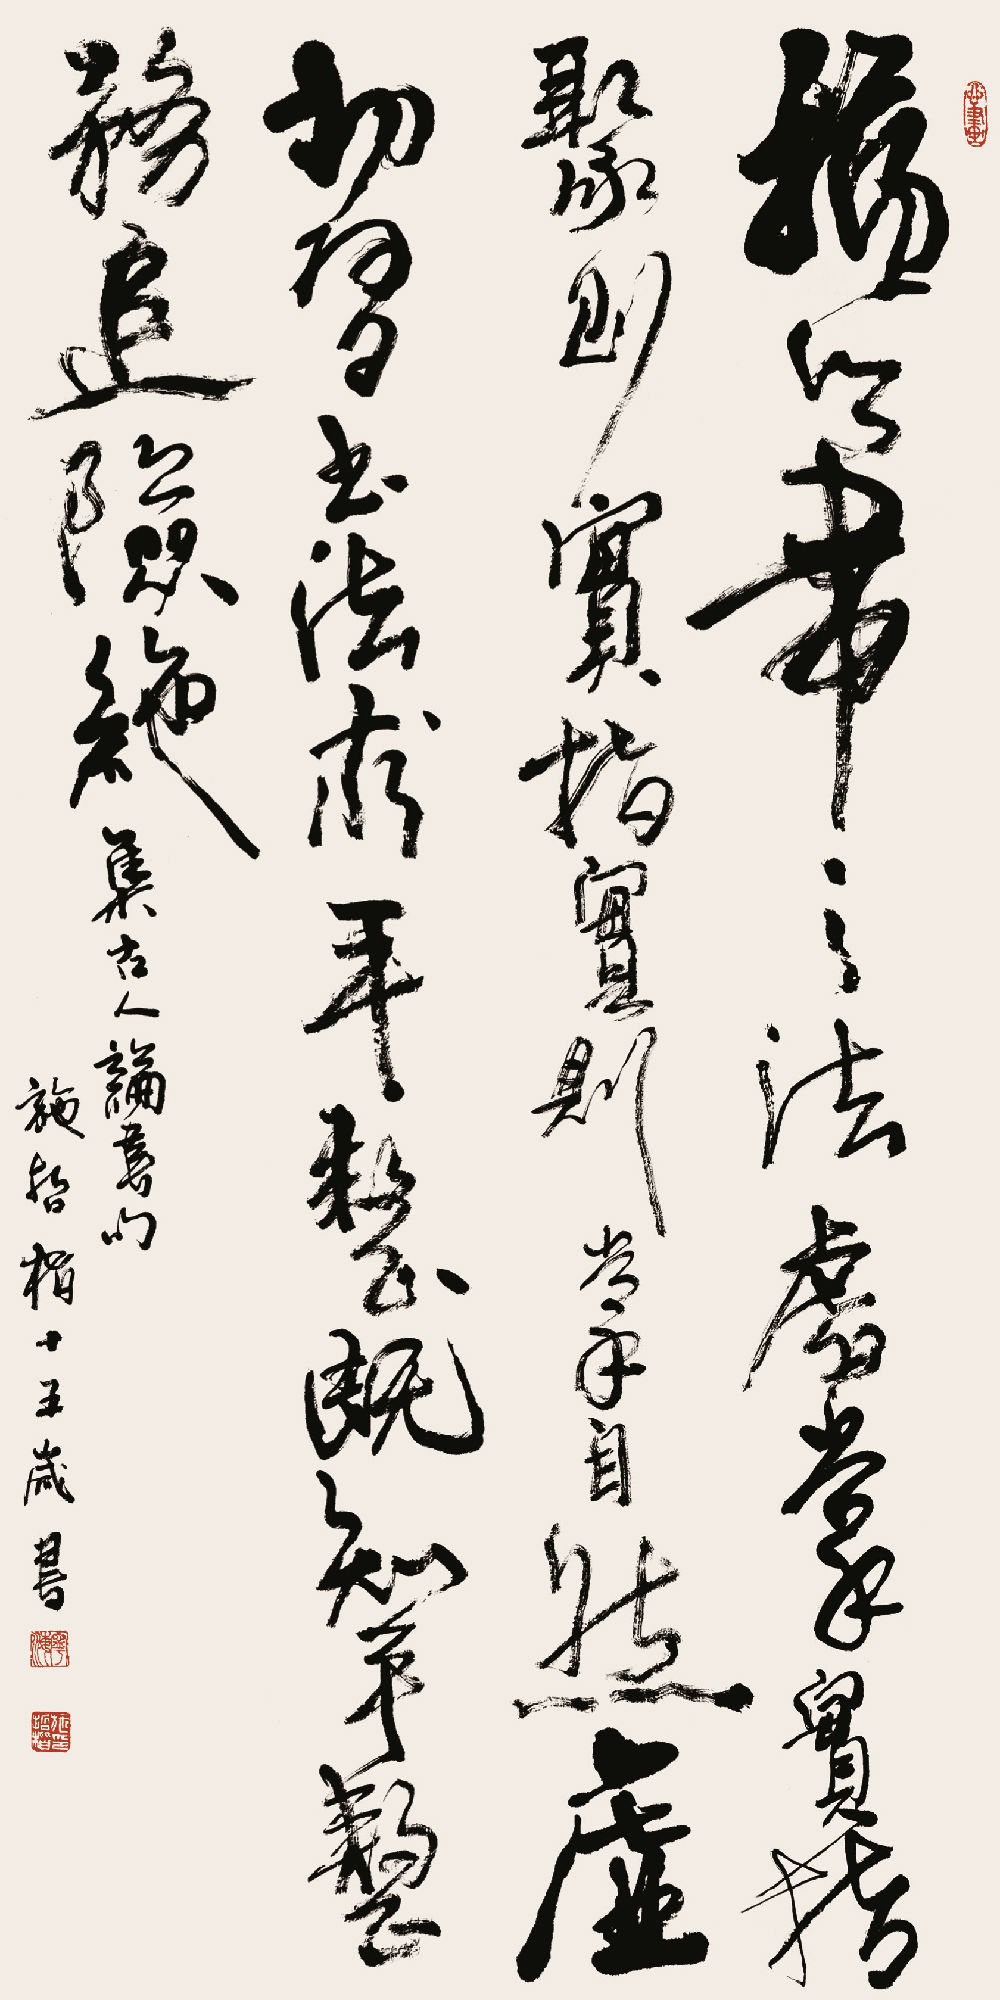 搦筆之法虛掌實指
聚則實指實則掌自然虛
初習書法求平整既知平整
務追險絕
集古人論書句
施哲楷十五歲書